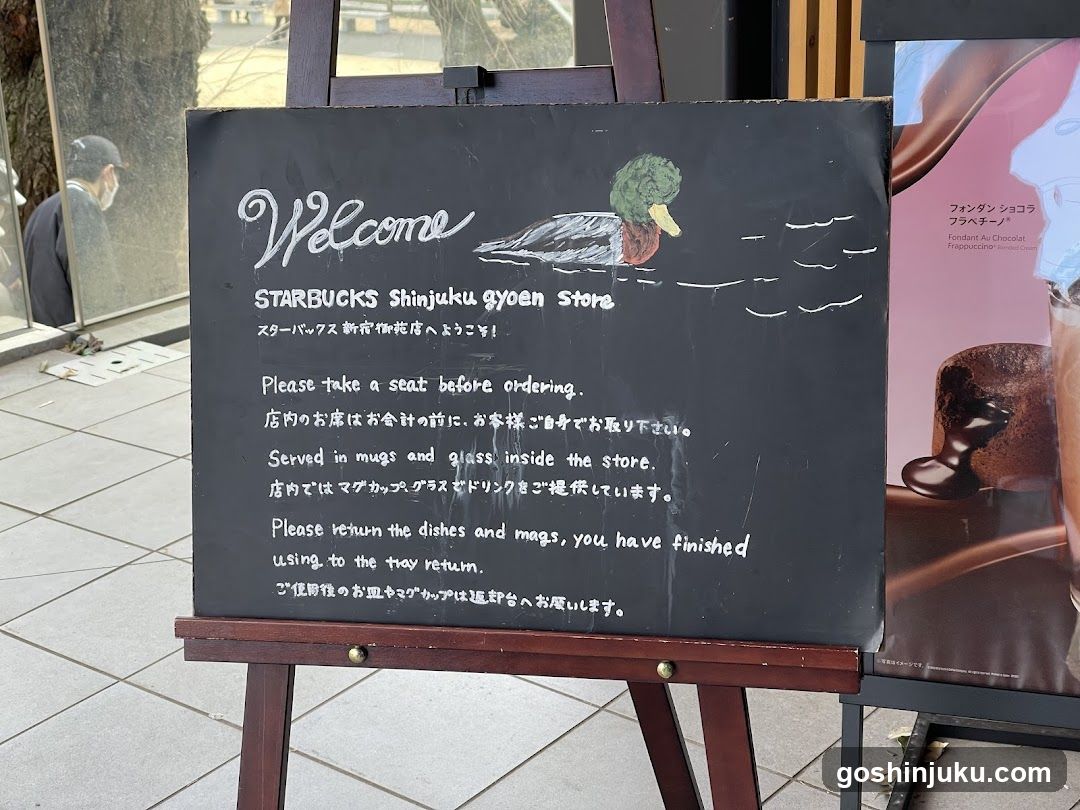 Welcome
STARBUCKS Shinjuku gyoen Store
スターバックス新宿御苑店へようこそ!
Please take a seat before ordering.
店内のお席はお会計の前に、お客様ご自身でお取り下さい。
Served in mugs and glass inside the store.
店内ではマグカップ、グラスでドリンクをご提供しています。
Please return the dishes and mags, you have finished
using to the tray return.
ご使用後のお皿やマグカップは返却台へお願いします。
フォンダン ショコラ
フラペチーノ®
Fondant Au Chocolat
Frappuccino® Blended Cream
※写真はイメージです。
goshinjuku.com